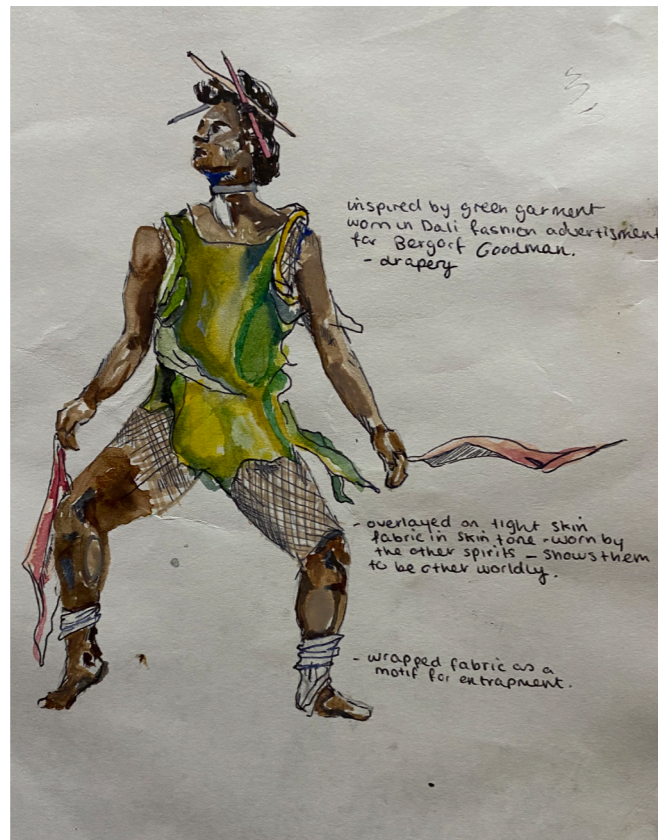 inspired by green garment
worn in Dali fashion advertisment
for Bergorf Goodman.
- drapery
- overlayed on tight skin
fabric in skin tone - worn by
the other spirits - shows them
to be other worldly.
- wrapped fabric as a
motif for entrapment.